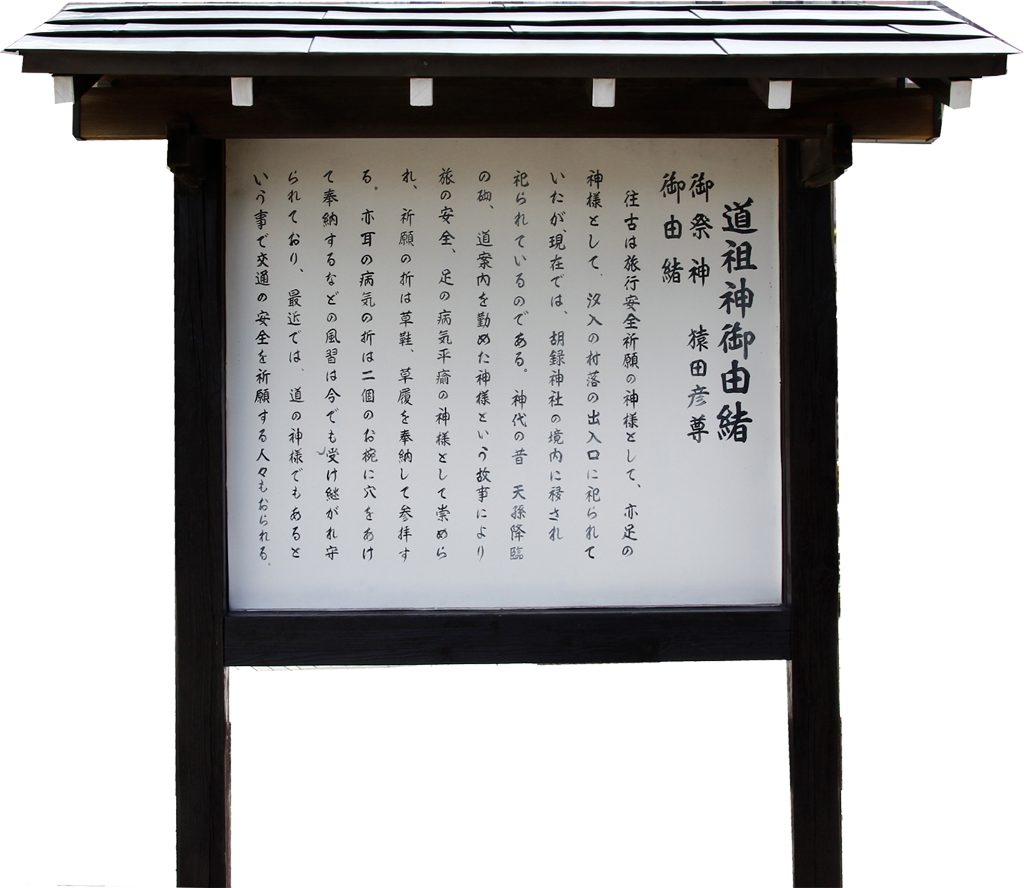 道祖神御由緒
御祭神　猿田彦尊
御由緒
往古は旅行安全祈願の神様として、亦足の
神様として、汐入の村落の出入口に祀られて
いたが、現在では、胡録神社の境内に移され
祀られているのである。神代の昔　天孫降臨
の砌、道案内を勤めた神様という故事により
旅の安全、足の病気平癒の神様として崇めら
れ、祈願の折は草鞋、草履を奉納して参拝す
る。亦耳の病気の折は二個のお椀に穴をあけ
て奉納するなどの風習は今でも受け継がれ守
られており、最近では、道の神様でもあると
いう事で交通の安全を祈願する人々もおられる。